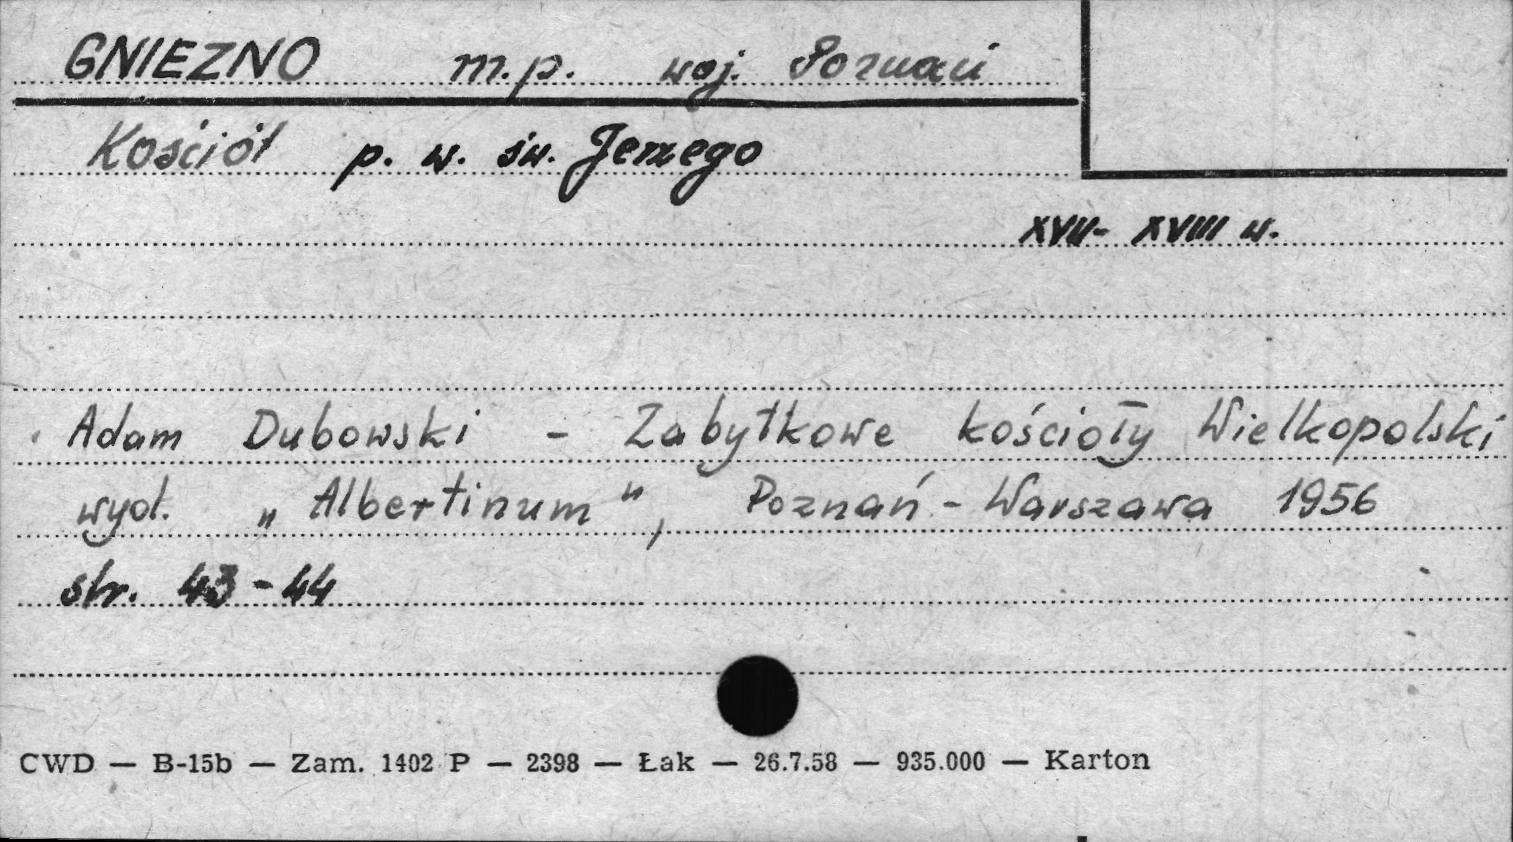 GNIEZNO m.p. woj. Poznań
Kościół p. w. św. Jerzego
XVII- XVIII w.
Adam Dubowski - Zabytkowe kościoły Wielkopolski
wyd. „Albertinum", Poznań - Warszawa 1956
str. 43-44
CWD — B-15b — Zam. 1402 P — 2398 — Łak — 26.7.58 — 935.000 — Karton